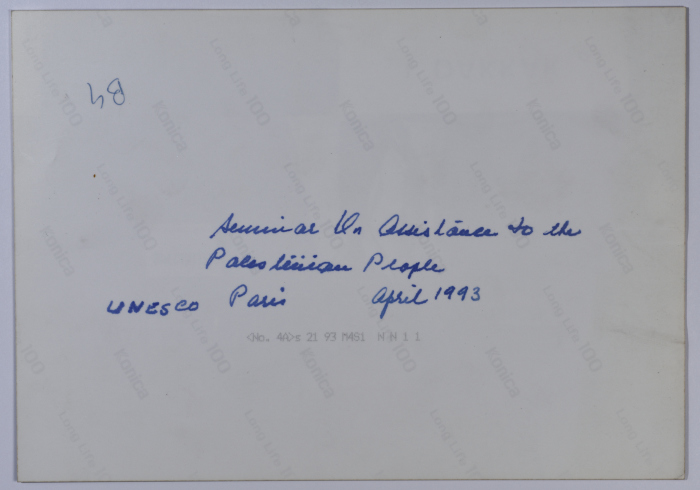 84
Seminar On Assistance to the
Palestinian People
UNESCO Paris April 1993
<No. 4A>s 21 93 M4S1 N N 1 1
Konica
Long Life 100